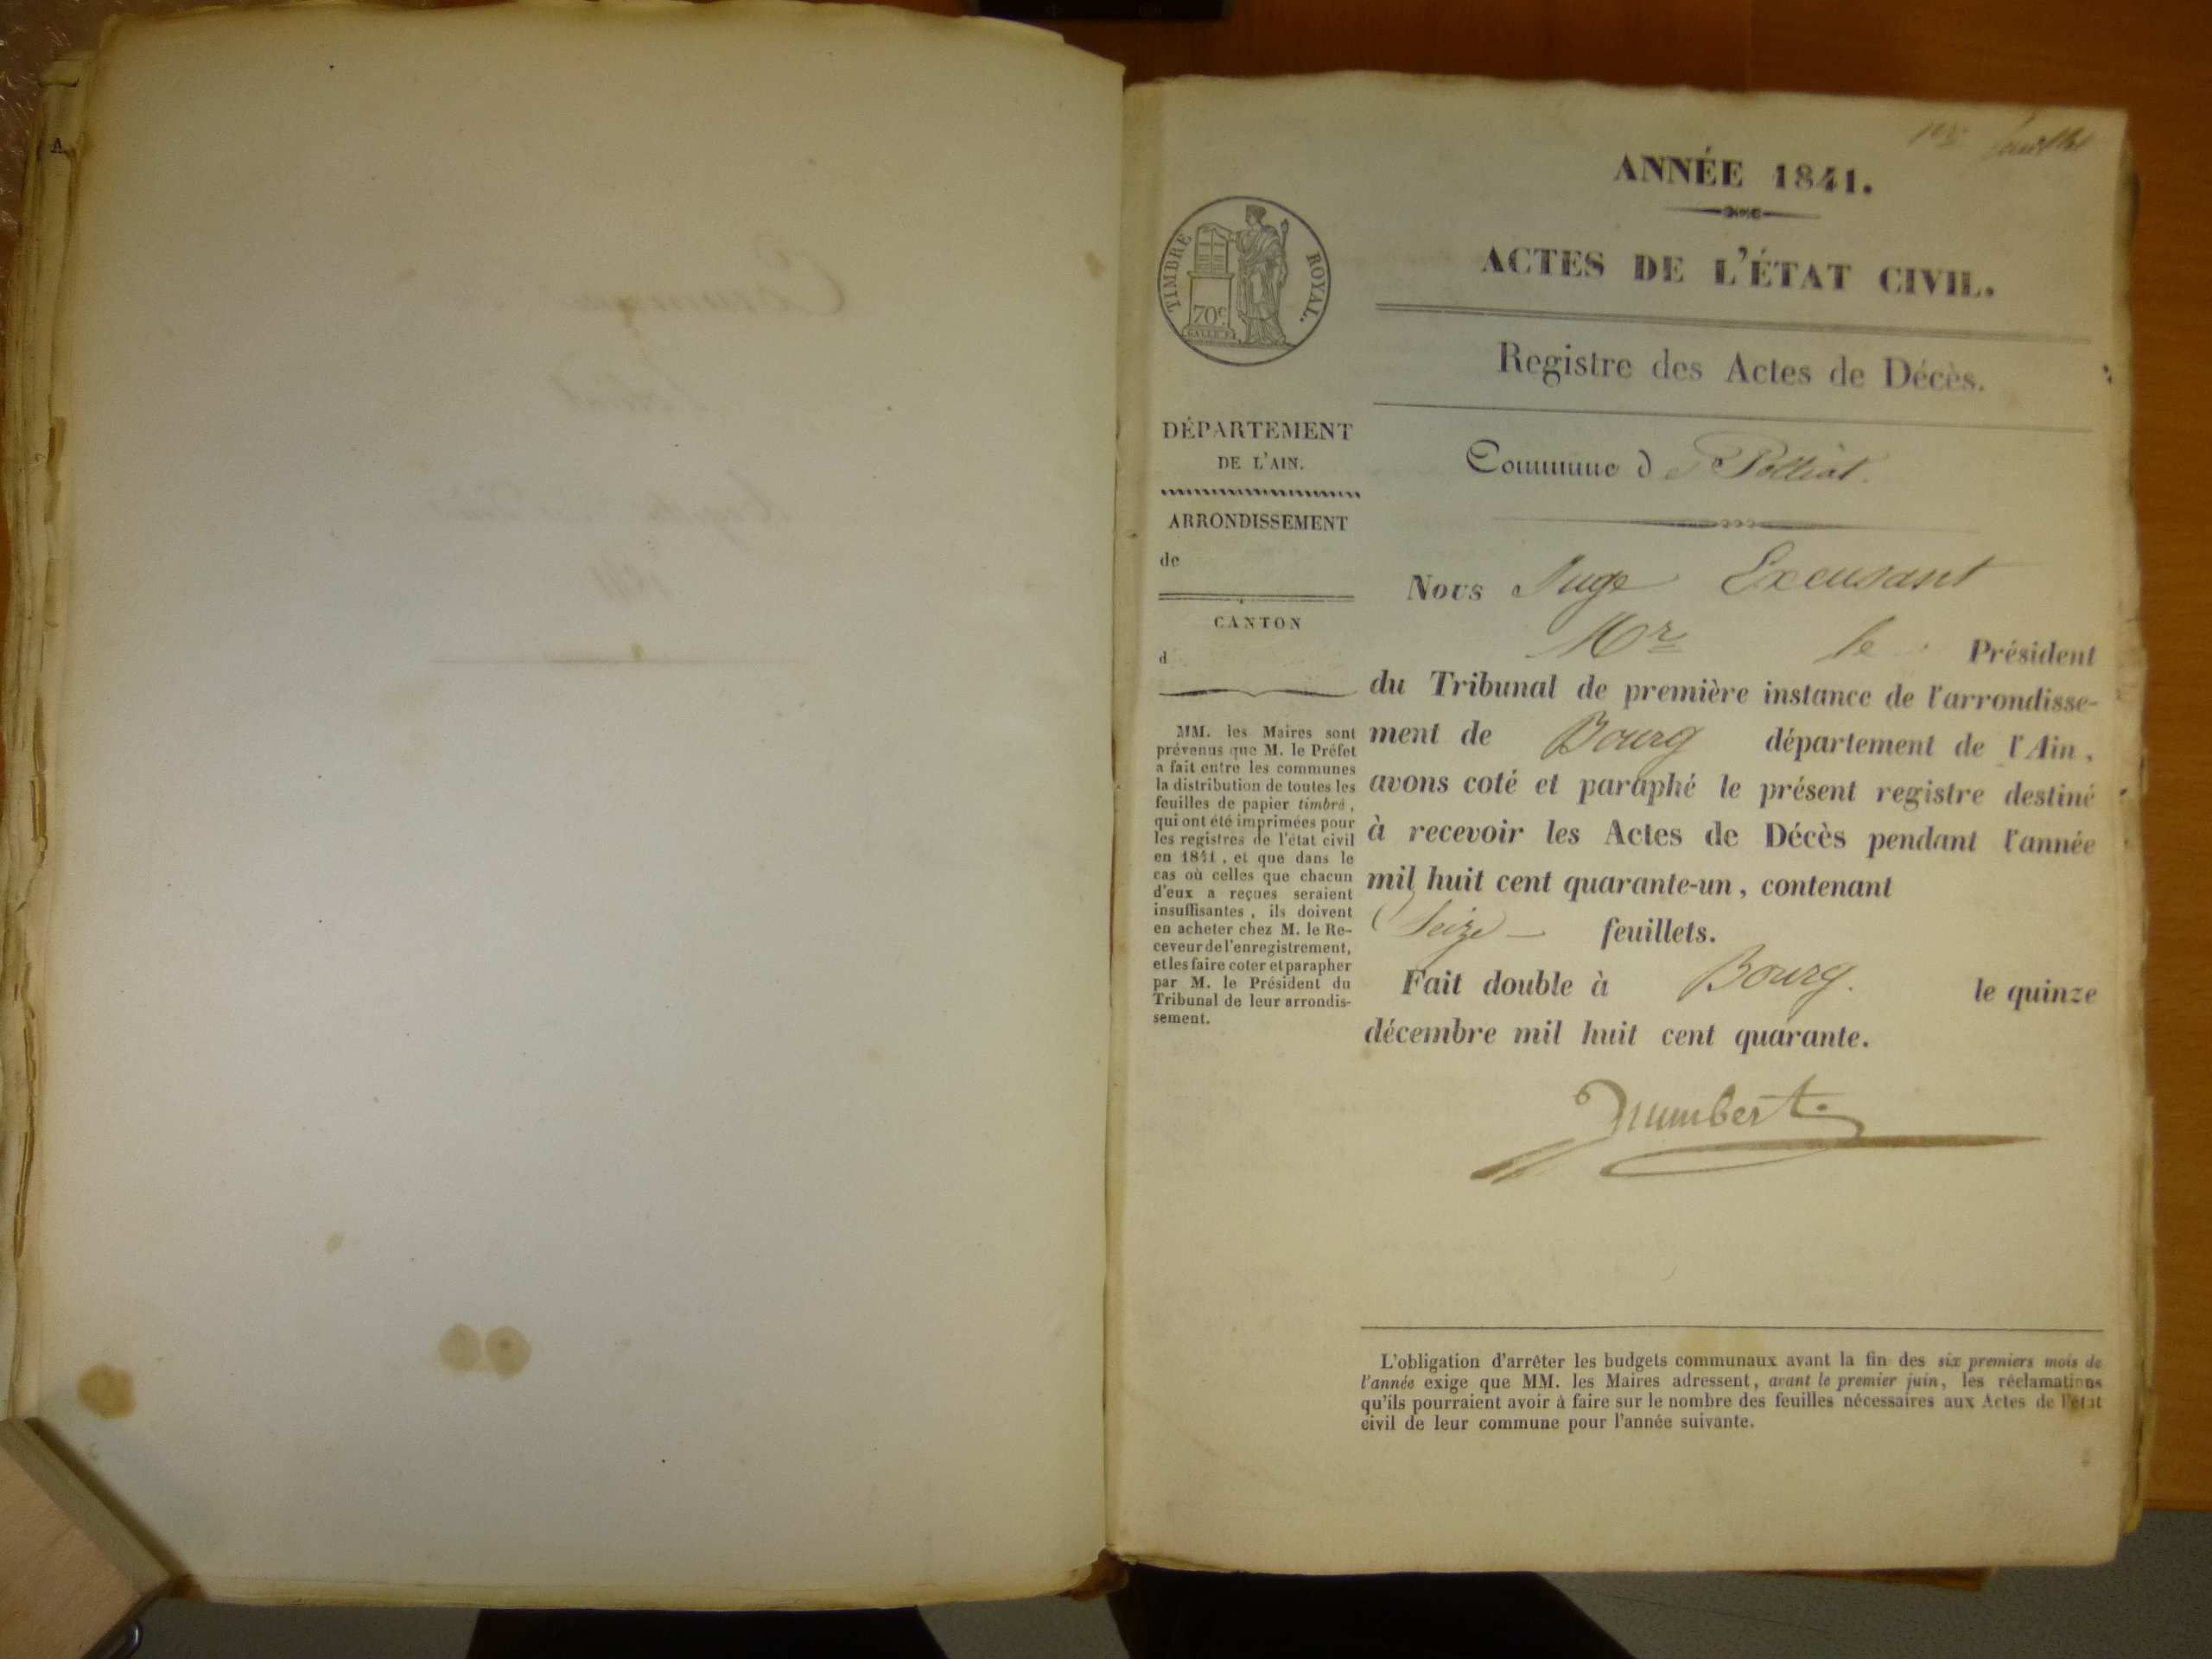 1er feuillet
ANNÉE 1841.
ACTES DE L'ÉTAT CIVIL.
TIMBRE ROYAL.
70c
Registre des Actes de Décès.
DÉPARTEMENT
DE L'AIN.
ARRONDISSEMENT
de
CANTON
d
Commune de Polliat.
Nous Juge Excusant
Mr le Président
du Tribunal de première instance de l'arrondisse-
ment de Bourg département de l'Ain,
avons coté et paraphé le présent registre destiné
à recevoir les Actes de Décès pendant l'année
mil huit cent quarante-un, contenant
Seize feuillets.
Fait double à Bourg. le quinze
décembre mil huit cent quarante.
MM. les Maires sont
prévenus que M. le Préfet
a fait entre les communes
la distribution de toutes les
feuilles de papier timbré,
qui ont été imprimées pour
les registres de l'état civil
en 1841, et que dans le
cas où celles que chacun
d'eux a reçues seraient
insuffisantes, ils doivent
en acheter chez M. le Re-
ceveur de l'enregistrement,
et les faire coter et parapher
par M. le Président du
Tribunal de leur arrondis-
sement.
L'obligation d'arrêter les budgets communaux avant la fin des six premiers mois de
l'année exige que MM. les Maires adressent, avant le premier juin, les réclamations
qu'ils pourraient avoir à faire sur le nombre des feuilles nécessaires aux Actes de l'état
civil de leur commune pour l'année suivante.